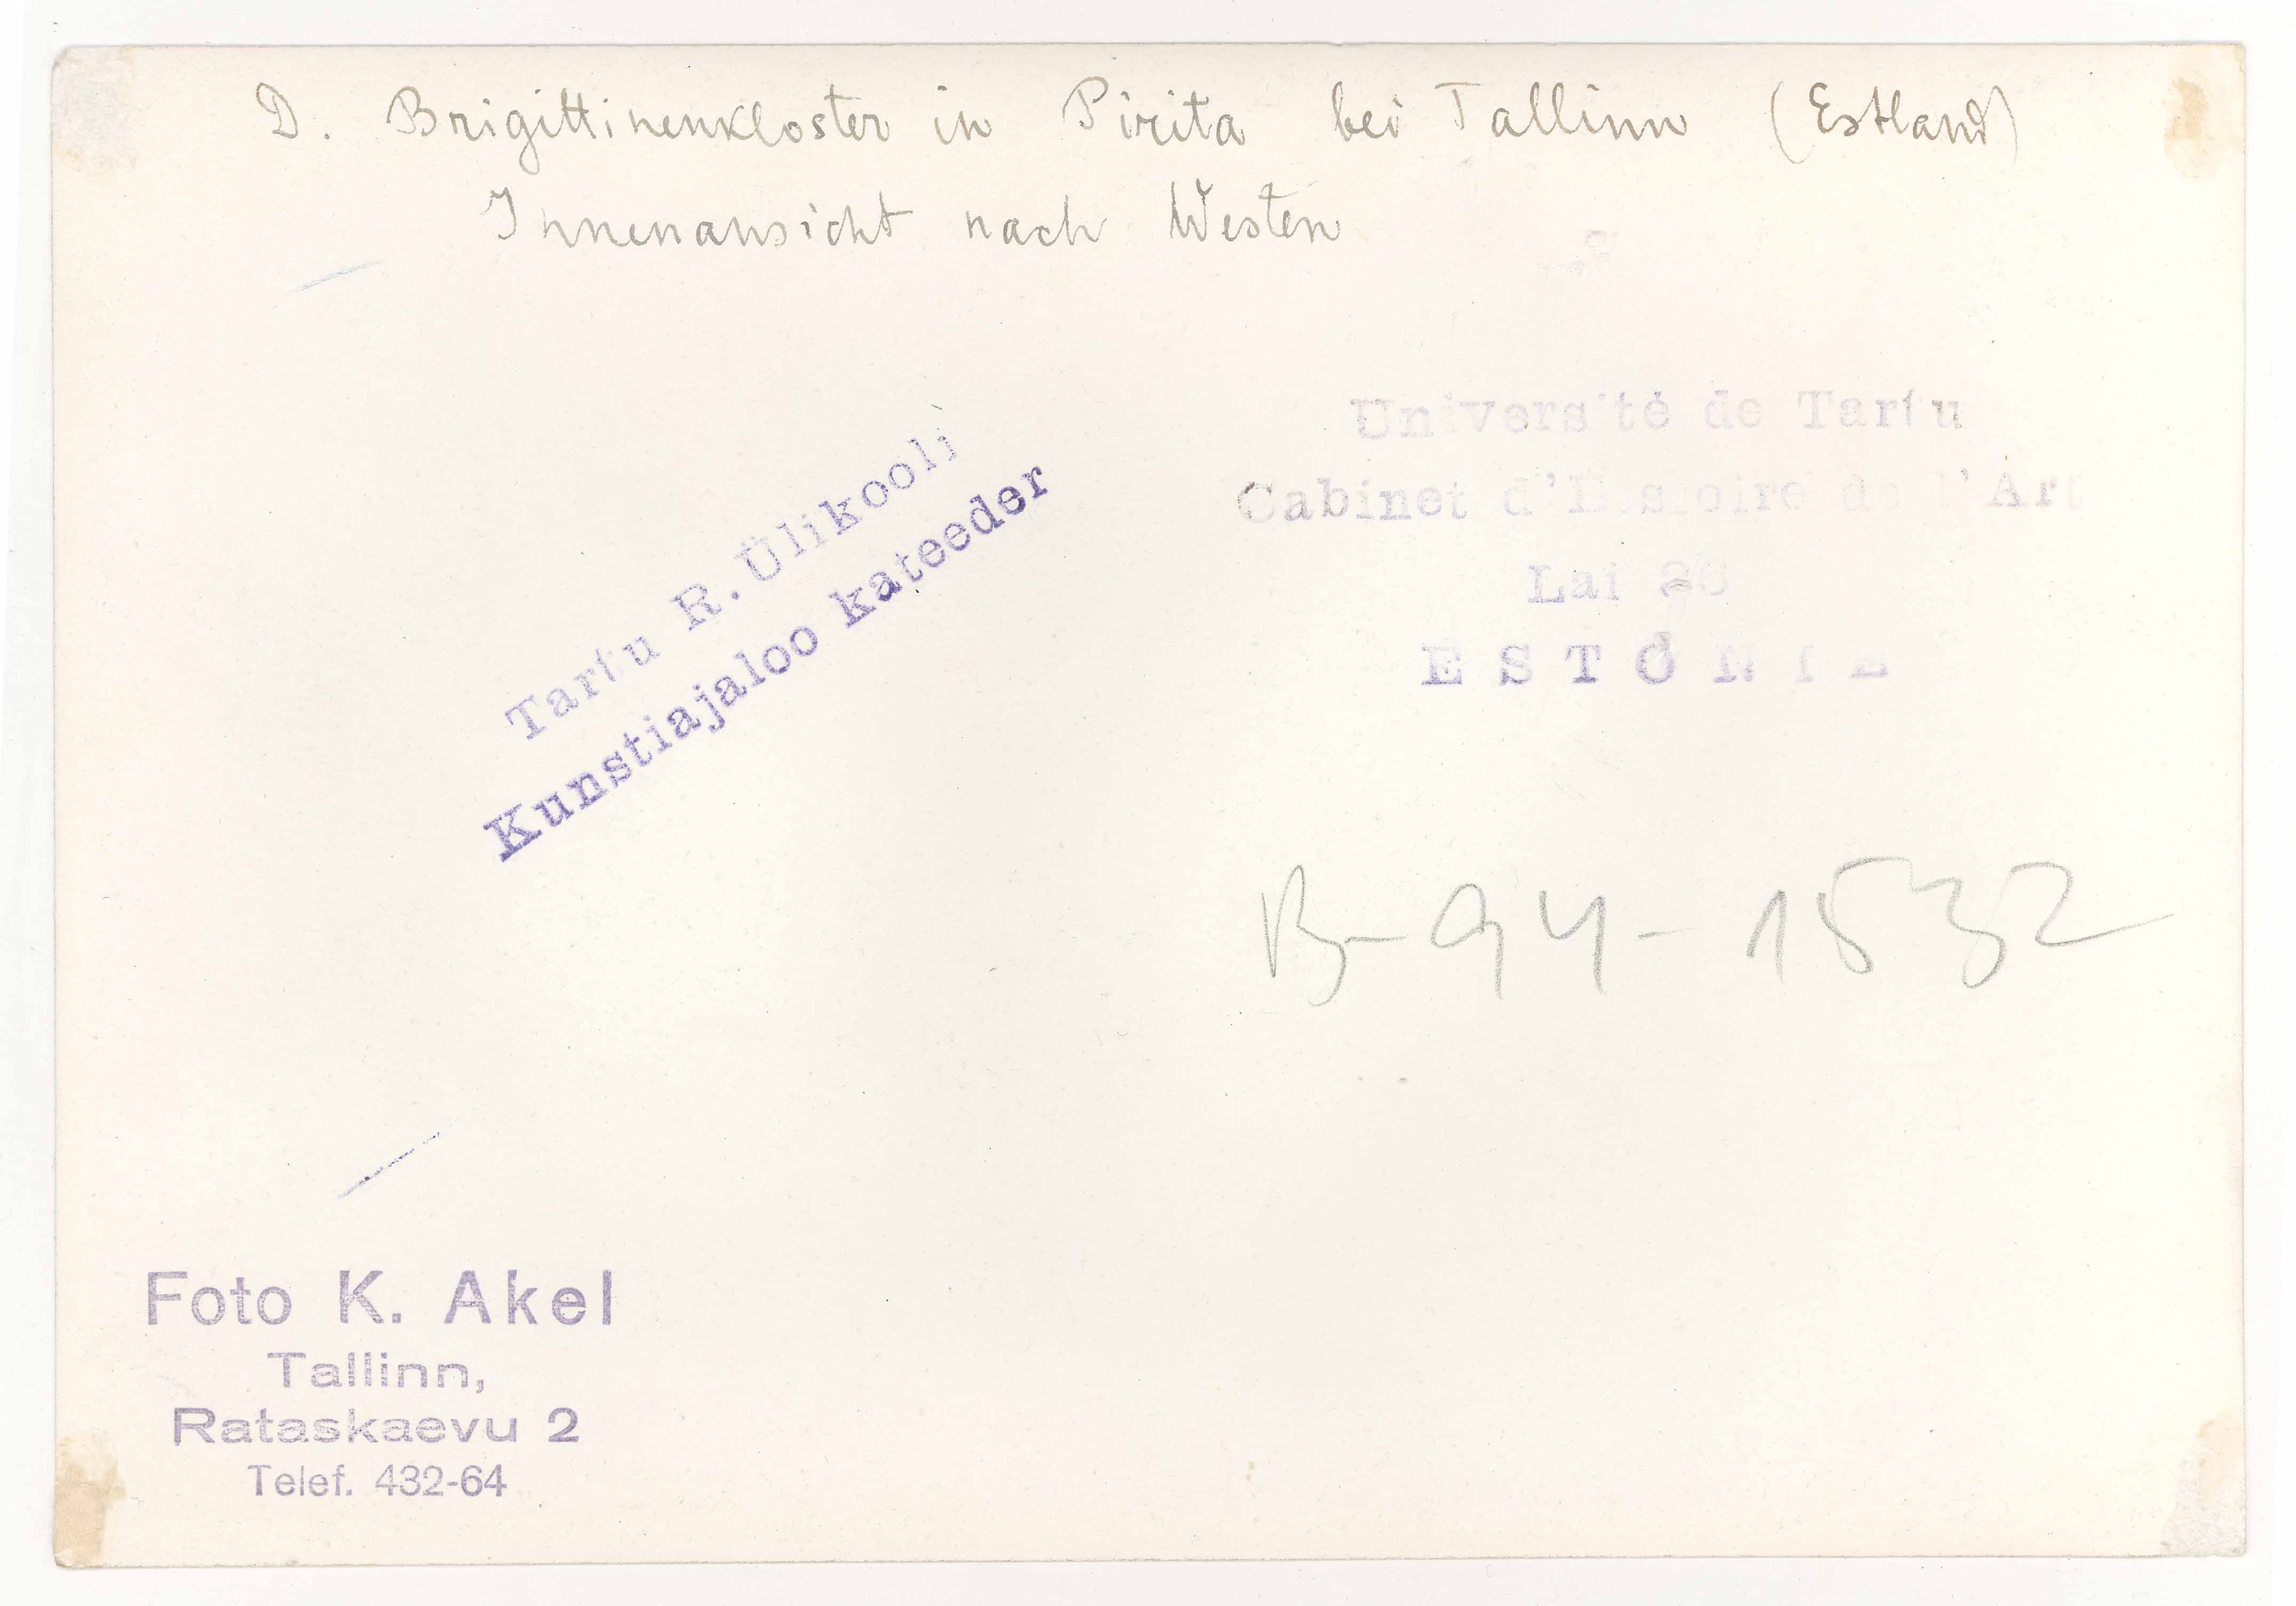 D. Brigittinenkloster in Pirita bei Tallinn (Estland)
Innenansicht nach Westen
Tartu R. Ülikooli
Kunstiajaloo kateeder
Université de Tartu
Cabinet d'Histoire de l'Art
Lai
ESTONIE
B-94-1532
Foto K. Akel
Tallinn,
Rataskaevu 2
Telef. 432-64